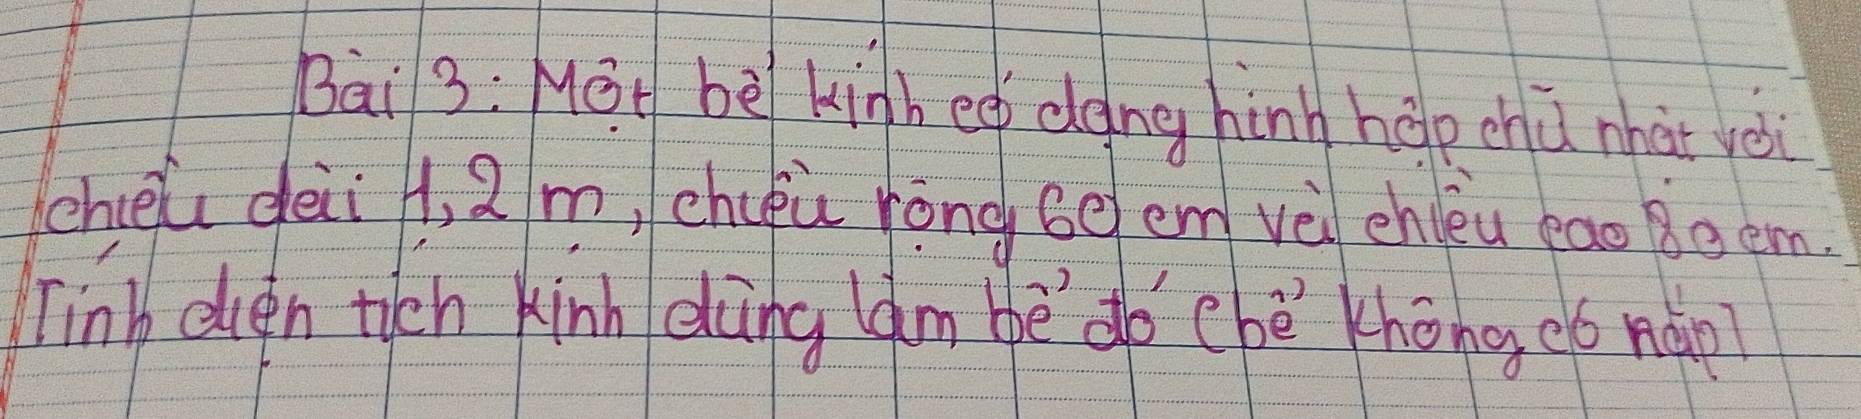 Bài 3: Một bể kính có dạng hình hộp chữ nhật với
chiều dài 1,2 m, chiều rộng 60 cm và chiều cao 80 cm.
Tính diện tích kính dùng làm bể đó (bể không có nắp)